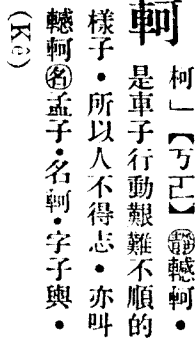 軻
柯」【ㄎㄜ】靜轗軻·
是車子行動艱難不順的
樣子·所以人不得志·亦叫
轗軻名孟子·名軻·字子輿·
(Kê)